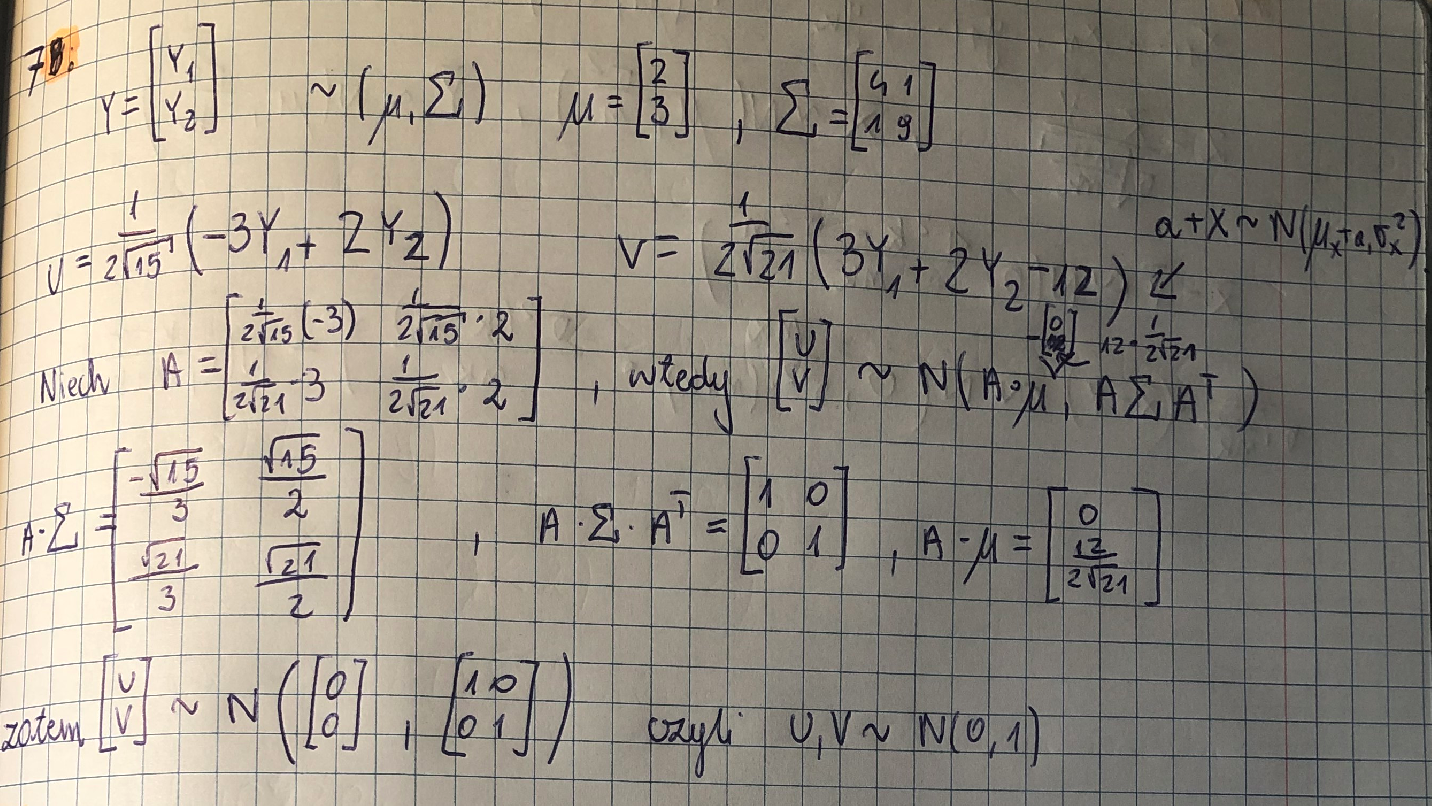 7B:
Y = [Y₁ Y₂] ~ (μ, Σ) μ = [2 3], Σ = [4 1 1 9]
U = 1/2√15 (-3Y₁ + 2Y₂) V = 1/2√21 (3Y₁ + 2Y₂ - 12)
a + X ~ N(μₓ+a, σₓ²)
Niech A = [1/2√15 (-3) 1/2√15 · 2 1/2√21 · 3 1/2√21 · 2], wtedy [U V] ~ N(A·μ, AΣAᵀ)
-[0] 12·1/2√21
A·Σ = [-√15/3 √15/2 √21/3 √21/2], A·Σ·Aᵀ = [1 0 0 1], A·μ = [0 12/2√21]
zatem [U V] ~ N([0 0], [1 0 0 1]) czyli U,V ~ N(0,1)